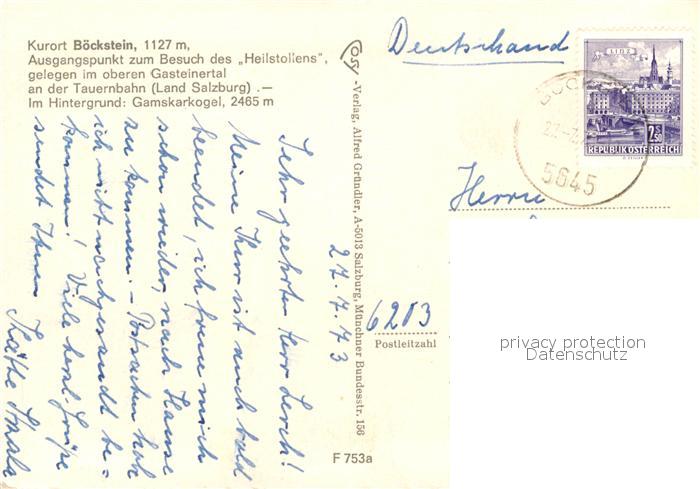 Kurort Böckstein, 1127 m,
Ausgangspunkt zum Besuch des „Heilstollens",
gelegen im oberen Gasteinertal
an der Tauernbahn (Land Salzburg) .—
Im Hintergrund: Gamskarkogel, 2465 m
27.7.73
Sehr geehrter Herr Lerch!
Meine Kur ist auch bald
beendet, ich freue mich
schon wieder, nach Hause
zu kommen. – Postsachen hab
ich nicht nachgesandt be=
kommen! Viele herzl. Grüße
sendet Ihnen
Käthe
Cosy -Verlag, Alfred Gründler, A-5013 Salzburg, Münchner Bundesstr. 156
F 753a
Deutschland
LINZ
2,50
REPUBLIK ÖSTERREICH
5645
Herrn
6203
Postleitzahl
privacy protection
Datenschutz